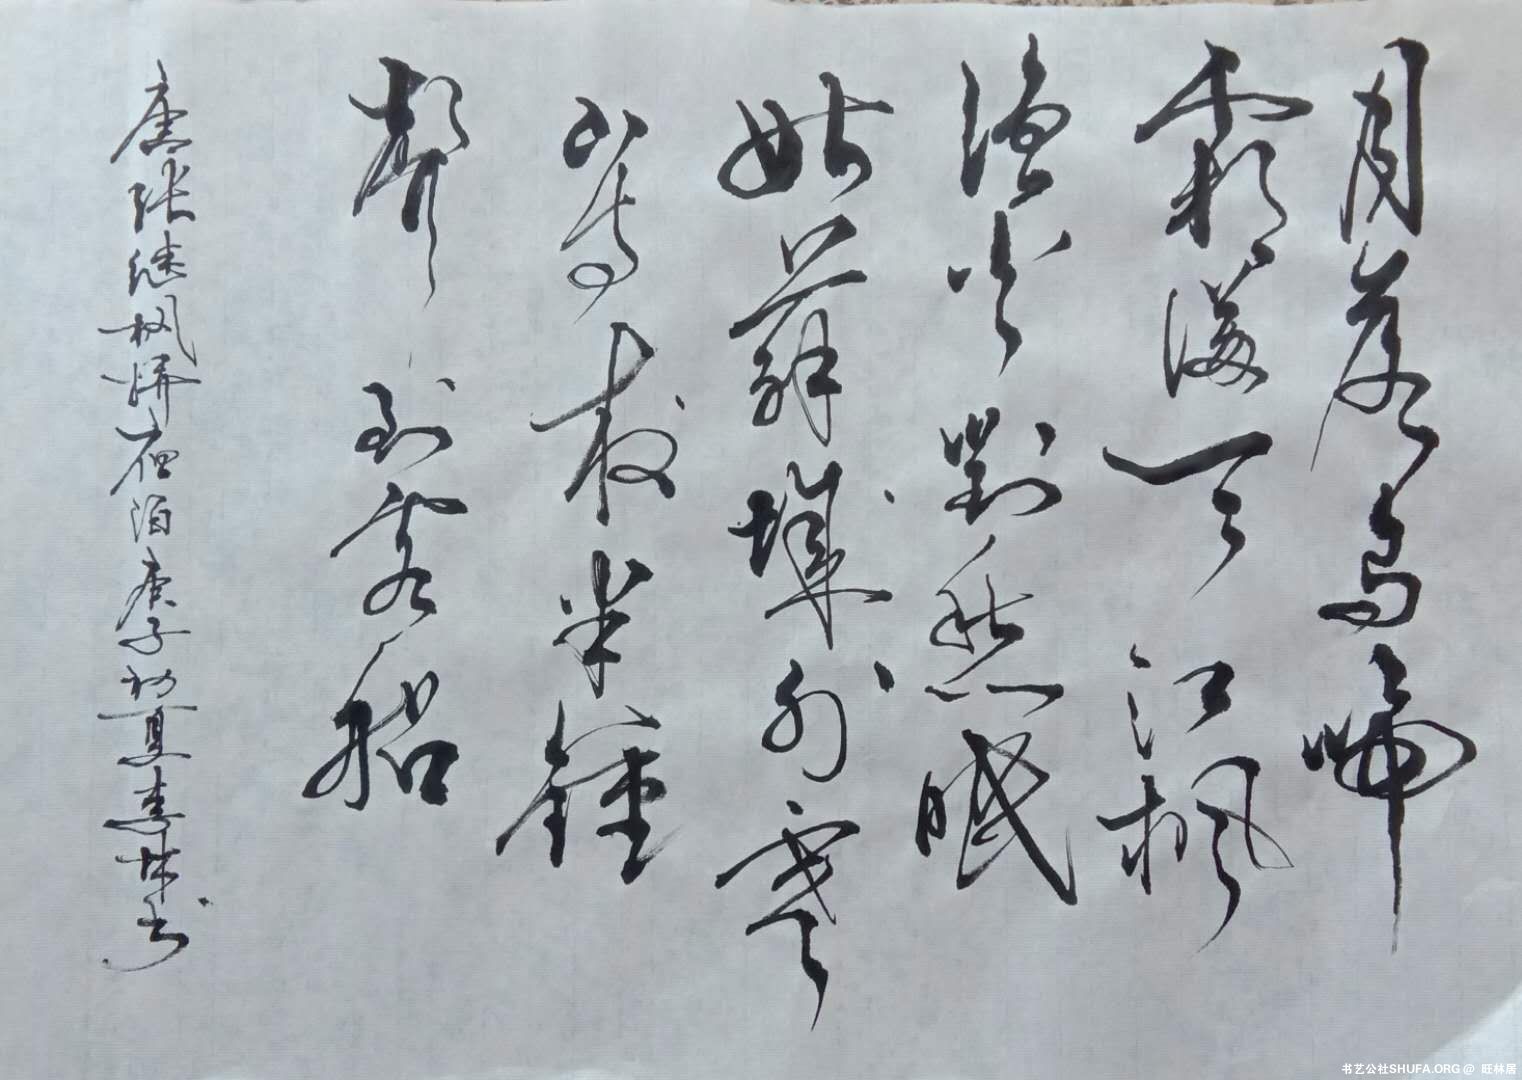 月落烏啼
霜滿天江枫
漁火對愁眠
姑蘇城外寒
山寺夜半鍾
聲到客船
唐张继枫桥夜泊庚子初夏林书
书艺公社SHUFA.ORG @ 旺林居